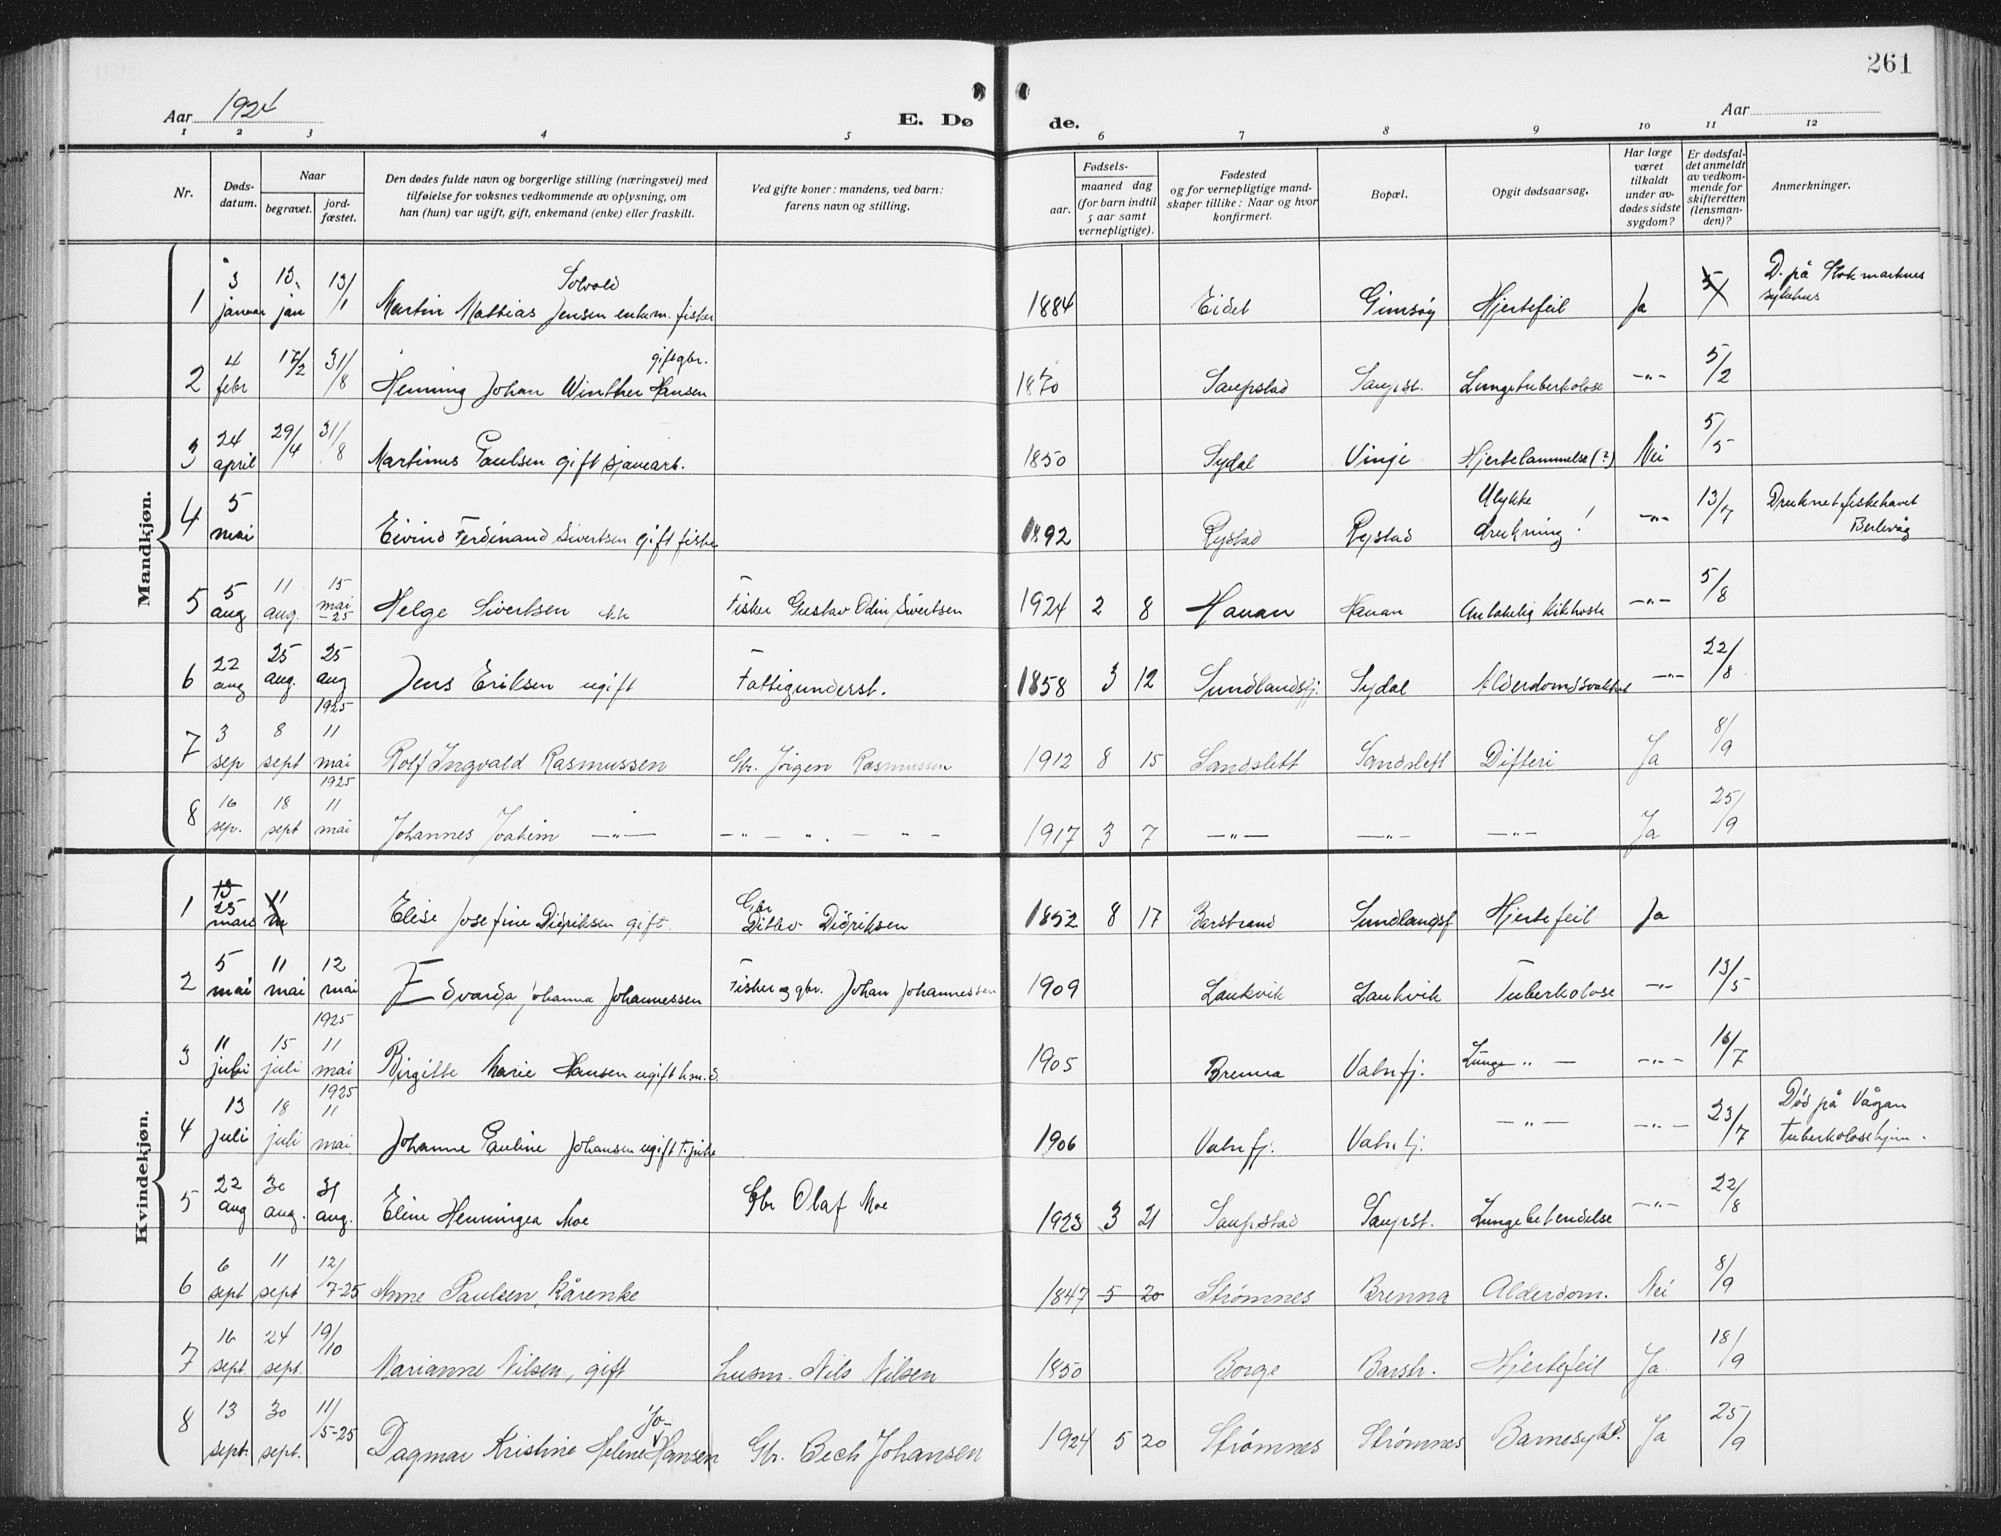 261
Aar 1924
E. Døde.
Aar
1 2 3 4 5 6 7 8 9 10 11 12
Nr.
Døds-datum.
Naar
begravet.
jord-fæstet.
Den dødes fulde navn og borgerlige stilling (næringsvei) med tilføielse for voksnes vedkommende av oplysning, om han (hun) var ugift, gift, enkemand (enke) eller fraskilt.
Ved gifte koner: mandens, ved barn: farens navn og stilling.
Fødsels-
aar.
maaned dag
(for barn indtil 5 aar samt vernepligtige).
Fødested og for vernepligtige mandskaper tillike: Naar og hvor konfirmert.
Bopæl.
Opgit dødsaarsag.
Har læge været tilkaldt under avdødes sidste sygdom?
Er dødsfaldet anmeldt av vedkommende for skifteretten (lensmanden)?
Anmerkninger.
Mandkjøn.
1 3 januar 13. jan 13/1 Martin Mathias Jensen Solvold enkem. fisker 1884 Eidet Gimsøy Hjertefeil Ja D. på Stokmarknes sykehus
2 4 febr 17/2 31/8 Henning Johan Winther Hansen gift gbr. 1870 Saupstad Saupst. Lungetuberkolose -"- 5/2
3 24 april 29/4 31/8 Martinus Paulsen gift sjauearb. 1850 Sydal Vinje Hjertelammelse (?) Nei 5/5
4 5 mai Eivind Ferdinand Sivertsen gift fisker 1892 Rystad Rystad Ulykke drukning! -"- 13/7 Druknet fiskehavet Berlevåg
5 5 aug 11 aug. 15 mai -25 Helge Sivertsen Fisker Gustav Odin Sivertsen 1924 2 8 Hauan Hauan Antakelig kikhoste -"- 5/8
6 22 aug 25 aug. 25 aug Jens Eriksen ugift Fattigunderst. 1858 3 12 Sundlandsfj. Sydal Alderdomssvakhet -"- 22/8
7 3 sep 8 sept 1925 11 mai Rolf Ingvald Rasmussen Gbr. Jörgen Rasmussen 1912 8 15 Sandslett Sandslett Difteri Ja 8/9
8 16 sep. 18 sept 1925 11 mai Johannes Joakim -"- -"- 1917 3 7 -"- -"- -"- Ja 25/9
Kvindekjøn.
1 25 mars Elise Josefine Didriksen gift. Gbr Ditlev Didriksen 1852 8 17 Barstrand Sundlandsf Hjertefeil Ja
2 5 mai 11 mai 12 mai Edvarda Johanna Johannessen Fisker og gbr. Johan Johannessen 1909 Laukvik Laukvik Tuberkolose -"- 13/5
3 11 juli 15 juli 1925 11 mai Birgitte Marie Hansen ugift 1905 Brenna Vatnfj. Lunge -"- -"- 16/7
4 13 juli 18 juli 1925 11 mai Johanne Pauline Johansen ugift 1906 Vatnfj. Vatnfj. -"- -"- 23/7 Död på Vågan tuberkolosehjem.
5 22 aug 30 aug. 31 aug. Eline Henningea Moe Gbr Olaf Moe 1923 3 21 Saupstad Saupst. Lungebetendelse -"- 22/8
6 6 sept 11 sept 12/7-25 Anne Paulsen, kårenke 1847 5 20 Strømnes Brenna Alderdom. Nei 8/9
7 16 sept. 24 sept. 19/10 Marianne Nilsen, gift Husm. Nils Nilsen 1850 Borge Barstr. Hjertefeil Ja. 18/9
8 13 sept. 30 sept. 11/5-25 Dagmar Kristine Helene Jo-Hansen Gbr. Bech Johansen 1924 5 20 Strömnes Strömnes Barnesykd. Ja 25/9